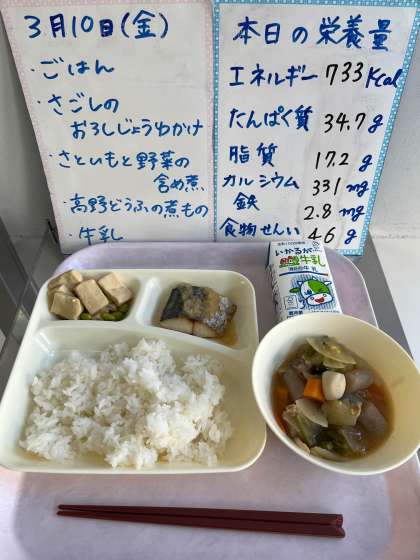 3月10日(金)
・ごはん
・さごしの
おろしじょうゆかけ
・さといもと野菜の
含め煮
・高野どうふの煮もの
・牛乳
本日の栄養量
エネルギー 733 Kcal
たんぱく質 34.7 g
脂質 17.2 g
カルシウム 331 mg
鉄 2.8 mg
食物せんい 4.6 g
いかるが
牛乳